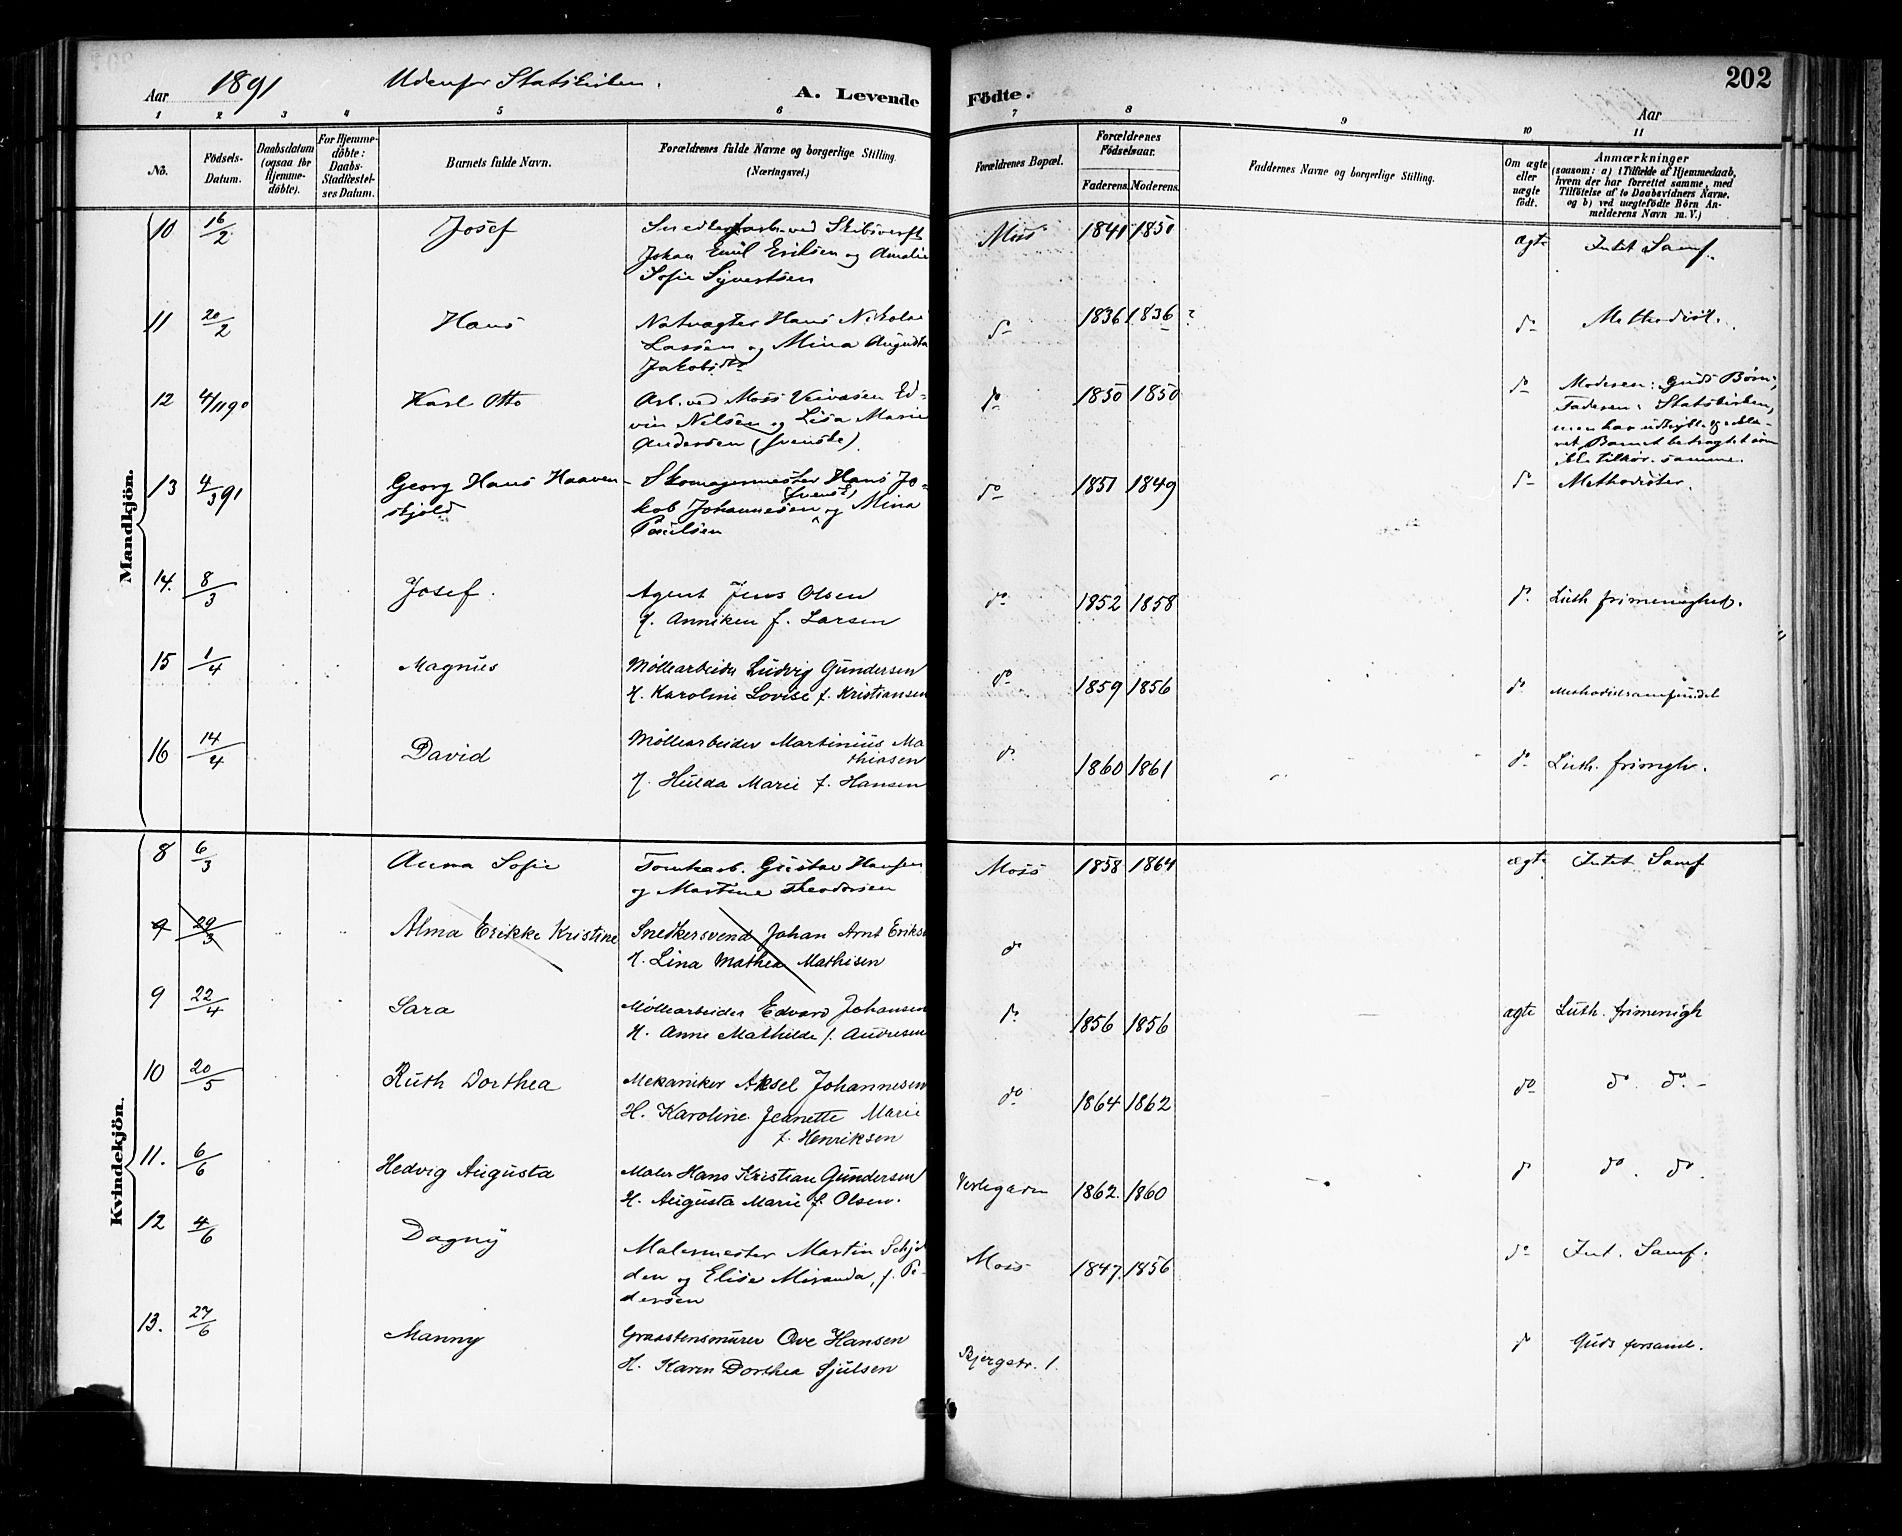 202
Aar 1891 Udenfor Statskirken. A. Levende Födte. Aar
1 2 3 4 5 6 7 8 9 10 11
No. Födsels-Datum. Daabsdatum (ogsaa for Hjemme-döbte). For Hjemme-döbte: Daabs-Stadfæstel-ses Datum. Barnets fulde Navn. Forældrenes fulde Navne og borgerlige Stilling. (Næringsvei.) Forældrenes Bopæl. Forældrenes Födselsaar. Faderens. Moderens. Faddernes Navne og borgerlige Stilling. Om ægte eller uægte födt. Anmærkninger (saasom: a) i Tilfælde af Hjemmedaab, hvem der har forrettet samme, med Tilföielse af to Daabsvidners Navne, og b) ved uægtefödte Börn An-melderens Navn m. V.)
Mandkjön.
10 16/2 Josef Snedkerarb. ved Skibsverft Moss 1841 1850 ægte Intet Samf.
Johan Emil Eriksen og Amalie
Sofie Syvertsen
11 20/2 Hans Natvagter Hans Nikolai do 1836 1836 ? do Methodist.
Lassen og Mina Augusta
Jakobsdtr
12 4/11 90 Karl Otto Arb. ved Moss Veivæsen Ed- do 1850 1850 do Moderen: Guds Børn,
vin Nilsen og Lisa Marie Faderen: Statskirken,
Andersen (svenske). men har udtrykt og erklæ-
ret, Barnet betragtet som
ikke tilhør. samme.
13 4/3 91 Georg Hans Haaven- Skomagermester Hans Ja- do 1851 1849 do Methodister.
skjold kob Johannesen (svensk) og Mina
Paulsen
14. 8/3 Josef. Agent Jens Olsen do 1852 1858 do Luth frimenighed.
H. Anniken f. Larsen
15 1/4 Magnus Møllearbeider Ludvig Gundersen do 1859 1856 do Methodistsamfundet
H. Karoline Lovise f. Kristiansen
16 14/4 David Møllearbeider Martinius Ma do 1860 1861 do Luth. frimgh.
thiasen
H. Hulda Marie f. Hansen
Kvindekjön.
8 6/3 Anna Sofie Tomtearb. Gustav Hansen Moss 1858 1864 ægte Intet Samf
og Martine Theodorsen
9 29/3 Alma Erikke Kristine Snedkersvend Johan Arnt Eriks do
H. Lina Mathea Mathisen
9 22/4 Sara Møllearbeider Edvard Johansen do 1856 1856 ægte Luth. frimenigh
H. Anne Mathilde f. Andresen
10 20/5 Ruth Dorthea Mekaniker Aksel Johannesen do 1864 1862 do do. do. -
H. Karoline Jeanette Marie
f. Henriksen
11. 6/6 Hedvig Augusta Maler Hans Kristian Gundersen Verlegaden 1862. 1860 do do. do.
H. Augusta Marie f. Olsen.
12 4/6 Dagny Malermester Martin Schjø Moss 1847. 1856 do Int. Samf.
den og Elise Miranda, f. Pe-
dersen
13. 27/6 Manny Graastensmurer Ove Hansen Bjergstr. 1. do Guds forsaml.
H. Karen Dorthea Sjulsen